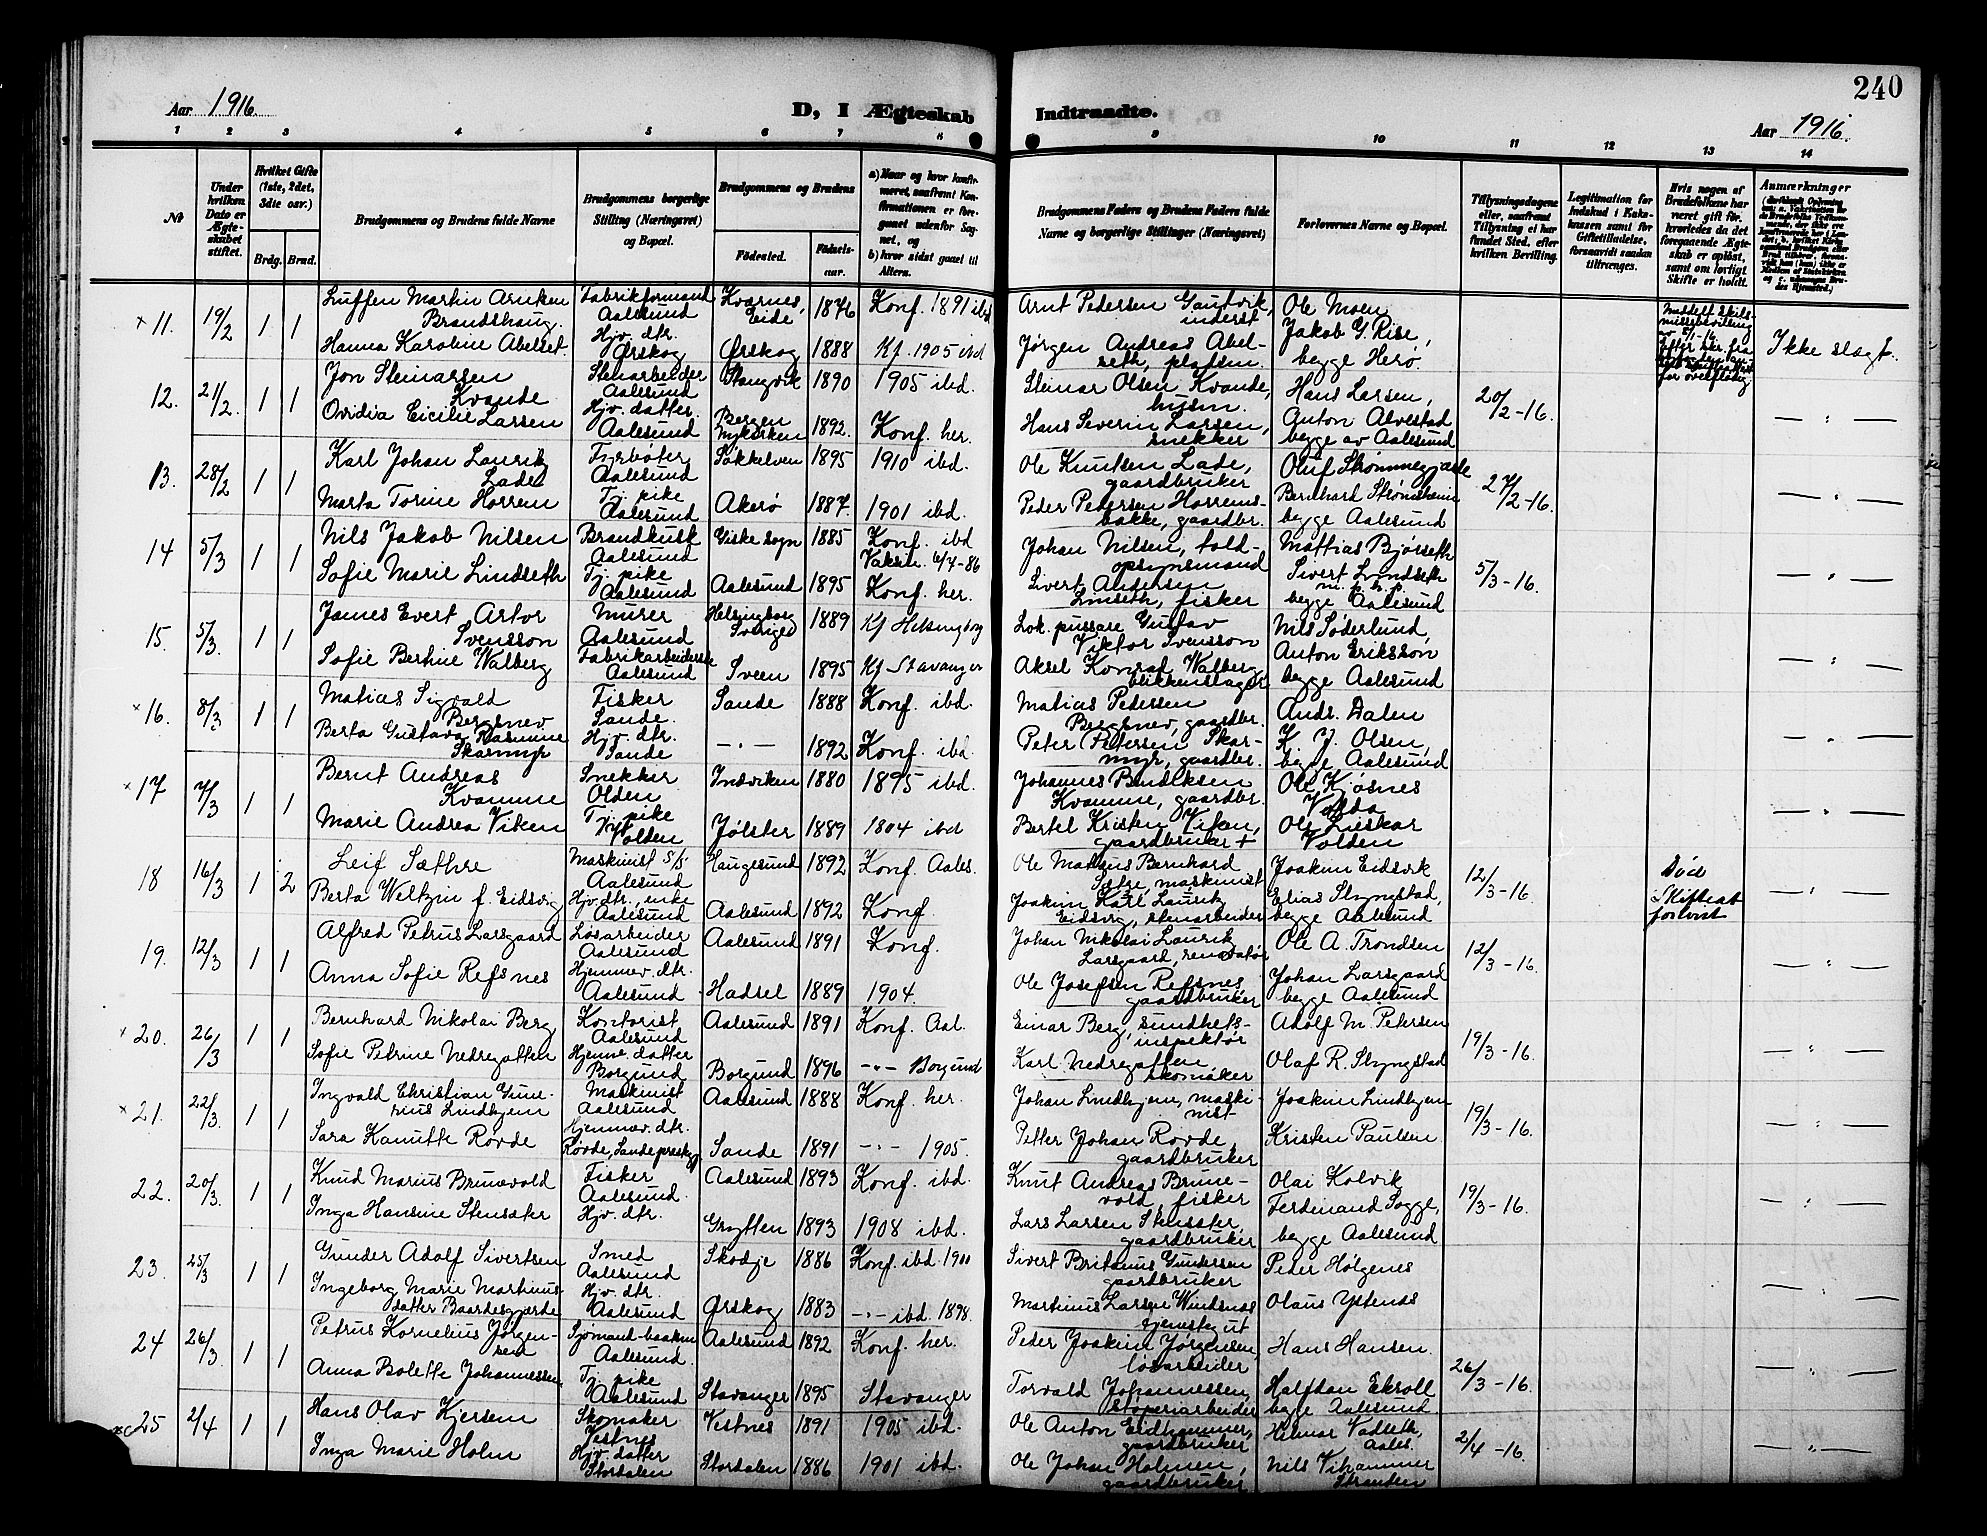 240
Aar 1916.
D, I Ægteskab Indtraadte.
Aar 1916.
1 2 3 4 5 6 7 8 9 10 11 12 13 14
№
Under hvilken Dato er Ægteskabet stiftet.
Hvilket Gifte (1ste, 2det, 3die osv.)
Brdg. Brud.
Brudgommens og Brudens fulde Navne
Brudgommens borgerlige Stilling (Næringsvei) og Bopæl.
Brudgommens og Brudens
Fødested. Fødselsaar.
a) Naar og hvor konfirmeret, saafremt Konfirmationen er foregaaet udenfor Sognet, og
b) hvor sidst gaaet til Alters.
Brudgommens Faders og Brudens Faders fulde Navne og borgerlige Stillinger (Næringsvei)
Forlovernes Navne og Bopæl.
Tillysningsdagene eller, saafremt Tillysning ei har fundet Sted, efter hvilken Bevilling.
Legitimation for Indskud i Enkekassen samt for Giftetilladelse, forsaavidt saadan tiltrænges.
Hvis nogen af Brudefolkene har været gift før, hvorledes da det foregaaende Ægteskab er opløst, samt om lovligt Skifte er holdt.
Anmærkninger
× 11. 19/2 1 1 Luffen Martin Arnken Fabrikformand Kvarnes, 1876 Konf. 1891 ibd Arnt Pedersen Gautvik, Ole Moen
Brandshaug. Aalesund Eide inderst Jakob G. Rise,
Hanna Karoline Abelset. Hjv. dtr. Ørskog Ørskog 1888 Kf. 1905 ibd Jørgen Andreas Abelseth, begge Herø. Ikke slegt.
12. 21/2. 1 1 Jon Steinarsen Stenarbeider Stangvik 1890 1905 ibd. Steinar Olsen Kvande, Hans Larsen, 20/2-16.
Kvande Aalesund husm. Anton Alvestad
Ovidia Cicilie Larsen Hjv. datter. Aalesund Bergen Nykirken 1892. Konf. her. Hans Severin Larsen, snekker begge av Aalesund
13. 28/2 1 1 Karl Johan Laurik Fyrbøter Søkkelven 1895 1910 ibd. Ole Knutsen Lade, Oluf Strømmegjære 27/2-16.
Lade Aalesund gaardbruker Bernhard Strømsheim
Marta Torine Horrem Tj. pike Aalesund Akerø 1887. 1901 ibd. Peder Pedersen Horremsbakke, gaardbr. begge Aalesund
14 5/3 1 1 Nils Jakob Nilsen Brandkusk Giske sogn 1885 Konf. ibd Johan Nilsen, toldopsynsmand Mattias Bjørseth 5/3-16.
Aalesund Vaksin. 6/4-86 Sivert Lindseth
Sofie Marie Lindseth Tj. pike Aalesund Aalesund 1895 Konf. her. Sivert Andersen Linseth, fisker begge Aalesund
15. 5/3. 1 1 James Evert Artor Murer Helsingborg 1889 Kf Helsingborg Lok. pussare Gustav Nils Søderlund,
Svensson Aalesund Sverige Viktor Svensson Anton Eriksson
Sofie Bertine Walberg Fabrikarbeiderske Aalesund Sveen 1895 Kf Stavanger Aksel Konrat Walberg, blikkenslager begge Aalesund
× 16. 8/3 1 1 Matias Sigvald Fisker Sande 1888 Konf. ibd. Matias Petersen Andr. Dalen
Bergsnev Sande. Bergsnev, gaardbr. K. J. Olsen,
Berta Gustava Rasmine Skarmyr Hjv. dtr. Sande —„— 1892 Konf. ibd. Peter Petersen Skarmyr, gaardbr. begge Aalesund
× 17 7/3 1 1 Bernt Andreas Snekker Indviken 1880 1895 ibd. Johannes Bendiksen Ole Kjøsnes
Kvamme Olden Kvamme, gaardbr. Volda
Marie Andrea Viken Tj. pike Volden Jølster 1889 1804 ibd Bertel Kristen Viken, gaardbruker + Ole Lieskar Volden
18 16/3 1 2 Leif Sæthre Maskinist S/S Haugesund 1892 Konf. Aales. Ole Matæus Bernhard Joakim Eidsvik 12/3-16. Død
Aalesund Sætre, maskinist Elias Slyngstad Skifteat
Berta Weltzin f. Eidsvig Hjv. dtr., enke Aalesund Aalesund 1892 Konf. Joakim Karl Laurik Eidsvig, stenarbeider begge Aalesund forlvist
19. 12/3 1 1 Alfred Petrus Larsgaard Løsarbeider Aalesund 1891 Konf. Johan Nikolai Laurik Ole A. Trondsen 12/3-16.
Aalesund Larsgaard, renovatør
Anna Sofie Refsnes Hjemmev. dtr. Aalesund Hadsel 1889 1904. Ole Josefsen Refsnes, gaardbruker Johan Larsgaard begge Aalesund
× 20. 26/3 1 1 Bernhard Nikolai Berg Kontorist Aalesund 1891 Konf. Aal. Einar Berg, sundhetsinspektør Adolf M. Petersen 19/3-16.
Aalesund
Sofie Petrine Nedregotten Hjemme. datter Borgund Borgund 1896 —„— Borgund Karl Nedregotten skomaker Olaf R. Slyngstad
× 21. 22/3. 1 1 Ingvald Christian Gunerius Lindhjem Maskinist Aalesund Aalesund 1888 Konf. her. Johan Lindhjem, maskinist Joakim Lindhjem 19/3-16.
Sara Kanutte Rovde Hjemmev. dtr. Rovde, Sande prestegj Sande 1891 —„— 1905. Petter Johan Rovde, gaardbruker Kristen Paulsen.
22. 20/3. 1 1 Knud Marius Brunevold Fisker Aalesund 1893 Konf. ibd. Knut Andreas Brunevold, fisker Olai Kolvik 19/3-16.
Aalesund. Ferdinand Sogge,
Inga Hansine Stensæter Hjv. dtr. Grytten 1893 1908 ibd. Lars Larsen Stensæter, gaardbruker begge Aalesund
23. 25/3 1 1 Gunder Adolf Sivertsen Smed Aalesund Skodje 1886 Konf. ibd. 1900 Sivert Britanus Gundersen gaardbruker Peder Hølgenes
Ingeborg Marie Martinusdatter Baardsgjærde Hjv. dtr. Aalesund Ørskog 1883 —„— ibd. 1898. Martinus Larsen Windsnes tjenestegut Olaus Ystenes
24 26/3 1 1 Petrus Kornelius Jørgensen Sjømand Aalesund 1892 Konf. her. Peder Joakim Jørgensen, løsarbeider Hans Hansen.
Aalesund.
Anna Bolette Johannessen Tj. pike Aalesund Stavanger 1895 Stavanger Torvald Johannessen, støperiarbeider Halfdan Ekroll begge Aalesund. 26/3-16.
25 2/4 1 1 Hans Olav Kjersem Skomaker Vestnes 1891 1905 ibd. Ole Anton Eidhammer, gaardbruker Hilmar Vadseth, Aales. 2/4-16.
Vestnes
Inga Marie Holm Hjv. datter Stordalen Stordalen 1886 1901 ibd. Ole Johan Holmen, gaardbruker Nils Vihammer